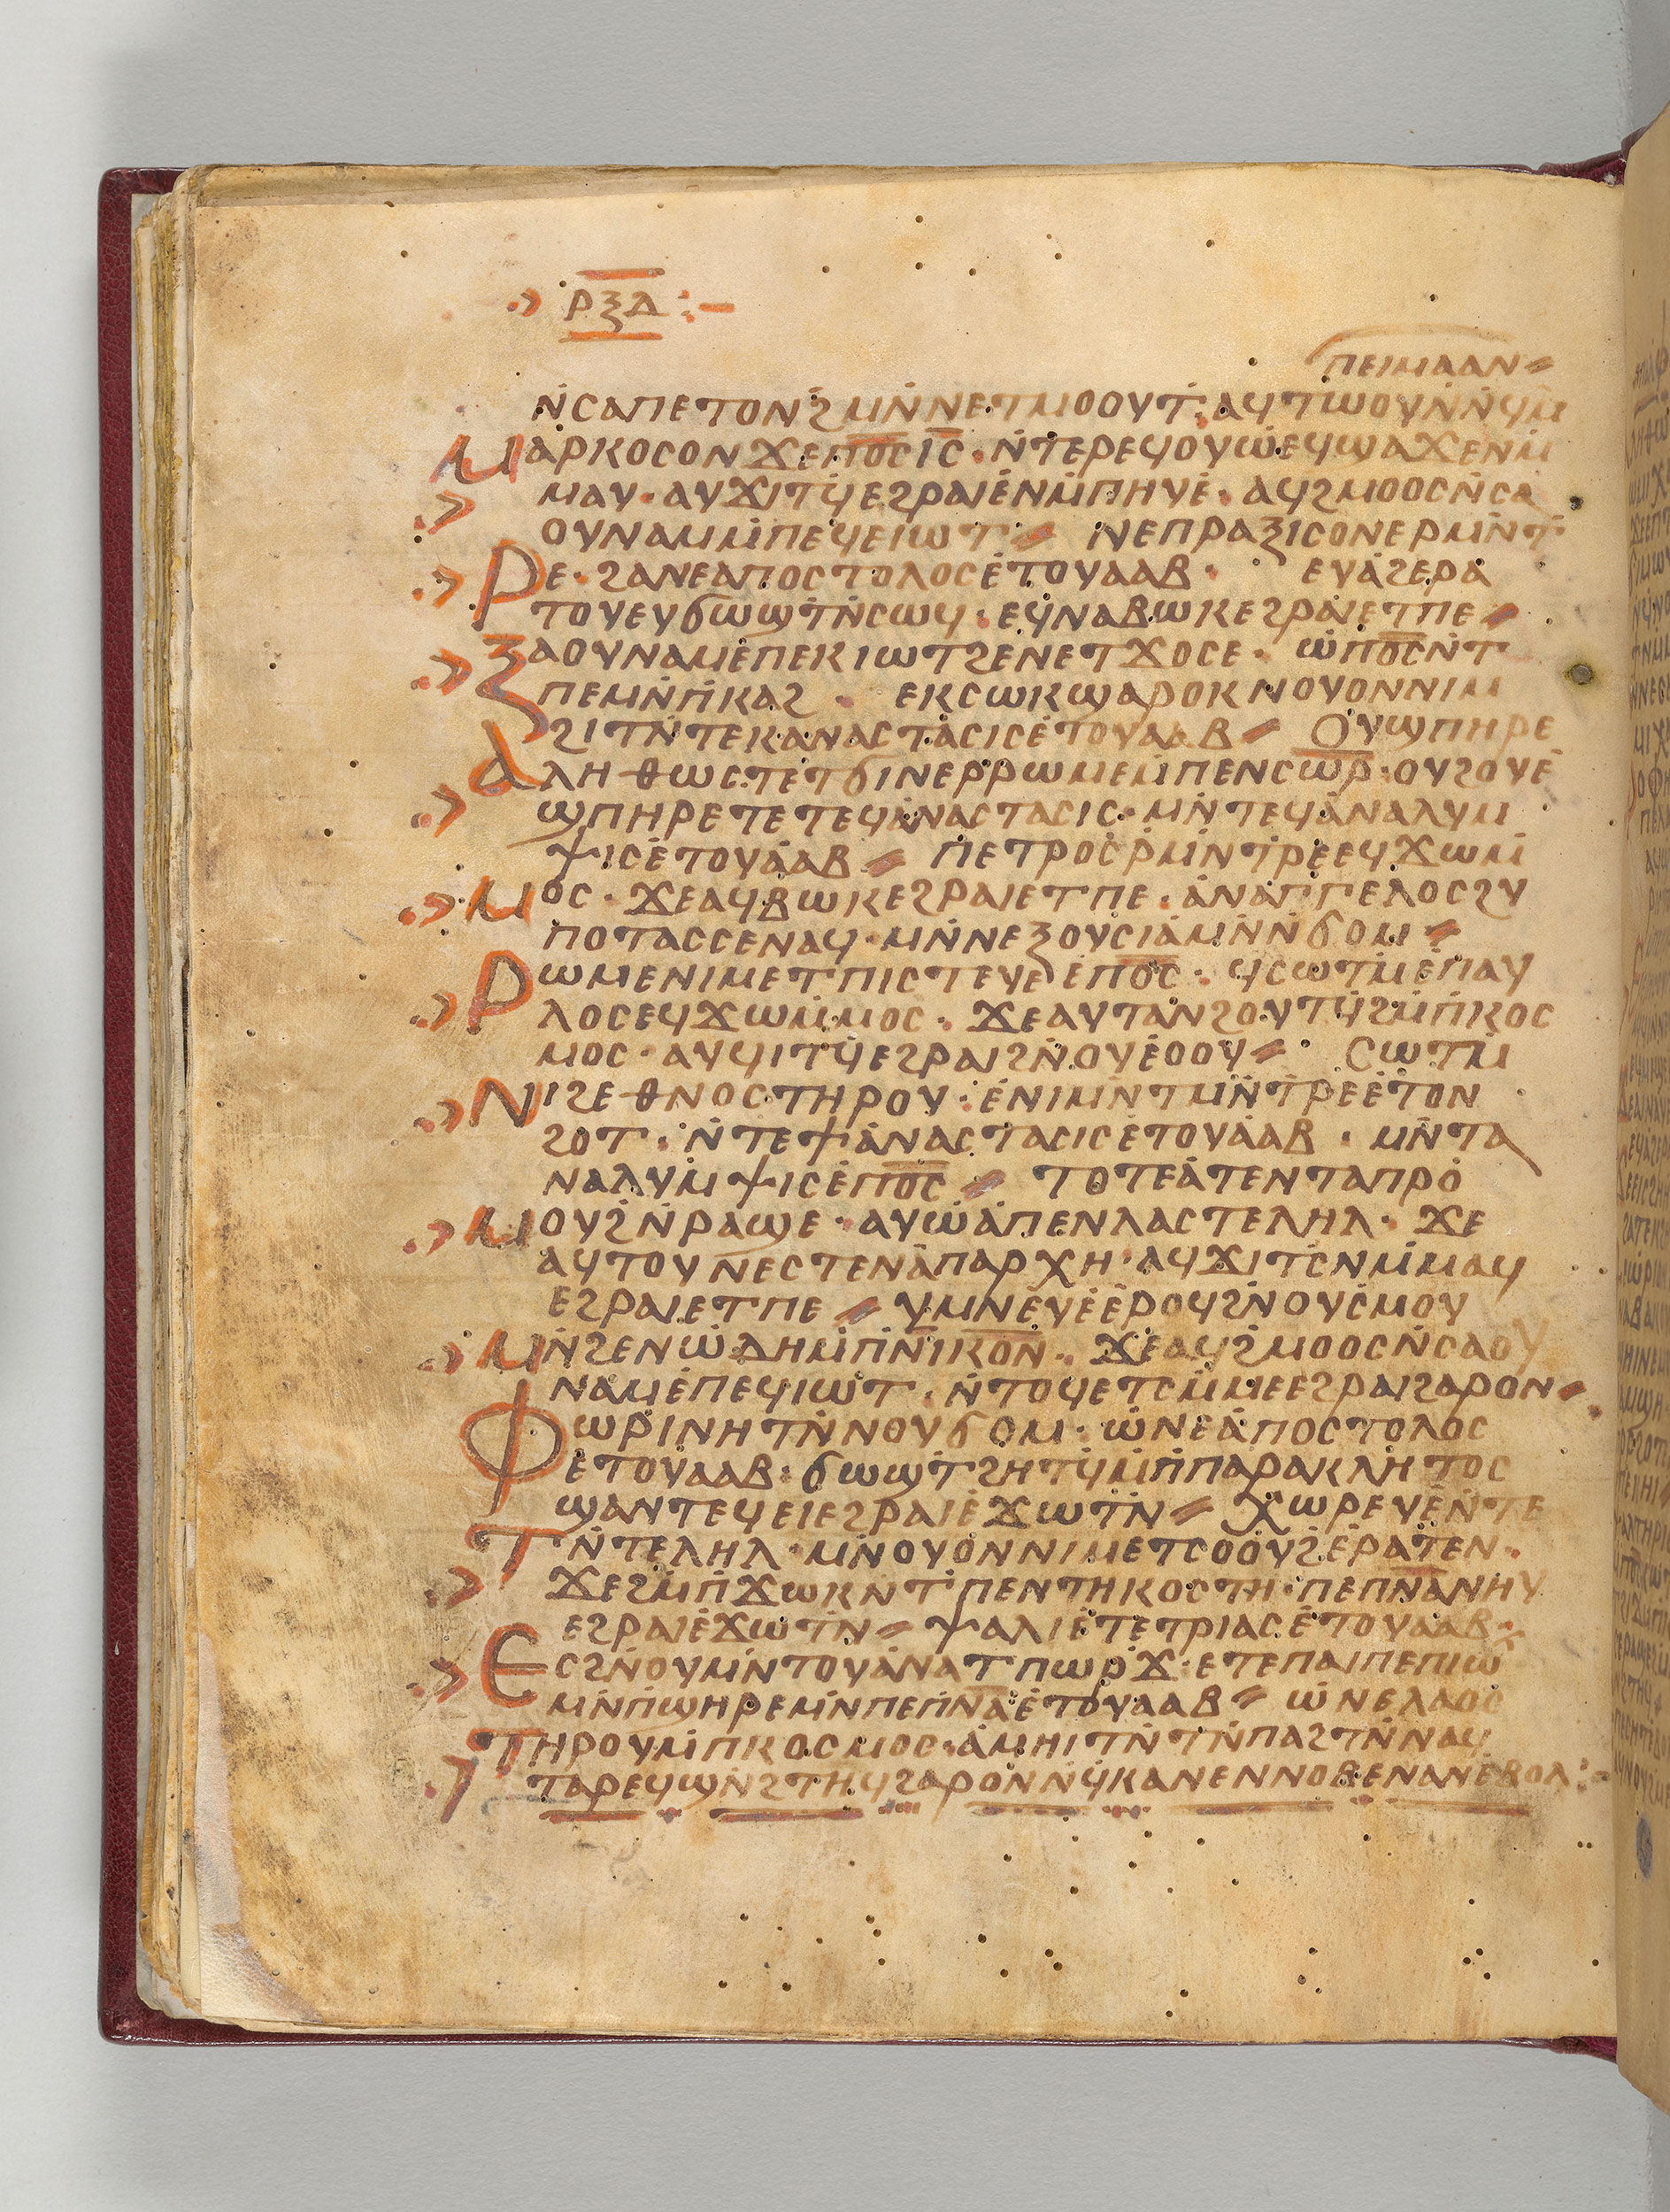 ⲣⲝⲇ
ⲡⲉⲓⲙⲁⲁⲛ
ⲛ̇ⲥⲁⲡⲉⲧⲟⲛϩⲙⲛ̇ⲛⲉⲧⲙⲟⲟⲩⲧ· ⲁϥⲧⲱⲟⲩⲛ̇ⲛ̇ϥⲙ̇
ⲙⲁⲣⲕⲟⲥⲟⲛϫⲉⲡⲟ̅ⲥ̅ⲓ̅ⲥ̅· ⲛ̇ⲧⲉⲣⲉϥⲟⲩⲱ̇ⲉϥϣⲁϫⲉⲛⲙ̇
ⲙⲁⲩ· ⲁⲩϫⲓⲧϥ̇ⲉϩⲣⲁⲓⲉ̇ⲛⲙ̇ⲡⲏⲩⲉ̇· ⲁϥϩⲙⲟⲟⲥⲛ̇ⲥⲁ
ⲟⲩⲛⲁⲙⲙ̇ⲡⲉϥⲉⲓⲱⲧ ⲛⲉⲡⲣⲁⲝⲓⲥⲟⲛⲉⲣⲙⲛ̇ⲧ
ⲣⲉ· ϩⲁⲛⲉⲁⲡⲟⲥⲧⲟⲗⲟⲥⲉ̇ⲧⲟⲩⲁⲁⲃ· ⲉⲩⲁ̇ϩⲉⲣⲁ
ⲧⲟⲩⲉⲩϭⲱϣⲧ̇ⲛ̇ⲥⲱϥ· ⲉϥⲛⲁⲃⲱⲕⲉϩⲣⲁⲓⲉⲧⲡⲉ
ⲝⲁⲟⲩⲛⲁⲙⲉ̇ⲡⲉⲕⲓⲱⲧϩⲉⲛⲉⲧϫⲟⲥⲉ· ⲱ̇ⲡⲟ̅ⲥ̅ⲛ̇ⲧ
ⲡⲉⲙⲛ̇ⲡ̇ⲕⲁϩ· ⲉⲕⲥⲱⲕϣⲁⲣⲟⲕⲛⲟⲩⲟⲛⲛⲓⲙ
ϩⲓⲧⲛ̇ⲧⲉⲕⲁⲛⲁⲥⲧⲁⲥⲓⲥⲉ̇ⲧⲟⲩⲁⲁⲃ ⲟⲩϣⲡⲏⲣⲉ
ⲁⲗⲏⲑⲱⲥⲧⲉⲧϭⲓⲛⲉⲣⲣⲱⲙⲉⲙ̇ⲡⲉⲛⲥ̅ⲱ̅ⲣ̅· ⲟⲩϩⲟⲩⲉ̇
ϣⲡⲏⲣⲉⲧⲉⲧⲉϥⲁ̇ⲛⲁⲥⲧⲁⲥⲓⲥ· ⲙⲛ̇ⲧⲉϥⲁ̇ⲛⲁⲗⲩⲙ
ⲯⲓⲥⲉ̇ⲧⲟⲩⲁ̇ⲁⲃ ⲡⲉⲧⲣⲟⲥⲣ̇ⲙⲛ̇ⲧⲣⲉⲉϥϫⲱⲙ̇
ⲙⲟⲥ· ϫⲉⲁϥⲃⲱⲕⲉϩⲣⲁⲓⲉⲧⲡⲉ· ⲁ̇ⲛⲁⲅⲅⲉⲗⲟⲥϩⲩ
ⲡⲟⲧⲁⲥⲥⲉⲛⲁϥ· ⲙⲛ̇ⲛⲉⲝⲟⲩⲥⲓⲁ̇ⲙⲛ̇ⲛ̇ϭⲟⲙ
ⲣⲱⲙⲉⲛⲓⲙⲉⲧⲡⲓⲥⲧⲉⲩⲉ̇ⲉ̇ⲡⲟ̅ⲥ̅· ϥⲥⲱⲧⲙ̇ⲉ̇ⲡⲁⲩ
ⲗⲟⲥⲉϥϫⲱⲙ̇ⲙⲟⲥ· ϫⲉⲁⲩⲧⲁⲛϩⲟⲩⲧϥ̇ϩⲙ̇ⲡ̇ⲕⲟⲥ
ⲙⲟⲥ· ⲁⲩϥⲓⲧϥ̇ⲉϩⲣⲁⲓϩⲛ̇ⲟⲩⲉ̇ⲟⲟⲩ ⲥⲱⲧⲙ̇
ⲛⲓϩⲉⲑⲛⲟⲥⲧⲏⲣⲟⲩ· ⲉ̇ⲛⲓⲙⲛ̇ⲧⲙⲛ̇ⲧⲣⲉⲉ̇ⲧⲟⲛ
ϩⲟⲧ· ⲛ̇ⲧⲉϯⲁ̇ⲛⲁⲥⲧⲁⲥⲓⲥⲉ̇ⲧⲟⲩⲁ̇ⲁⲃ· ⲙⲛ̇ⲧⲁ
ⲛⲁⲗⲩⲙⲯⲓⲥⲉ̇ⲡⲟ̅ⲥ̅ ⲧⲟⲧⲉⲁ̇ⲧⲉⲛⲧⲁⲡⲣⲟ
ⲙⲟⲩϩⲛ̇ⲣⲁϣⲉ· ⲁⲩⲱ̇ⲁ̇ⲡⲉⲛⲗⲁⲥⲧⲉⲗⲏⲗ· ϫⲉ
ⲁϥⲧⲟⲩⲛⲉⲥⲧⲉⲛⲁ̇ⲡⲁⲣⲭⲏ· ⲁϥϫⲓⲧⲥ̇ⲛⲙ̇ⲙⲁϥ
ⲉϩⲣⲁⲓⲉⲧⲡⲉ ϩⲩⲙⲛⲉⲩⲉ̇ⲉ̇ⲣⲟϥϩⲛ̇ⲟⲩⲥⲙⲟⲩ
ⲙⲛ̇ϩⲉⲛⲱ̇ⲇⲏⲙ̇ⲡ̅ⲛ̅ⲓ̅ⲕⲟⲛ· ϫⲉⲁϥϩⲙⲟⲟⲥⲛ̇ⲥⲁⲟⲩ
ⲛⲁⲙⲉ̇ⲡⲉϥⲓⲱⲧ· ⲛ̇ⲧⲟϥⲉⲧⲥⲙ̇ⲙⲉⲉϩⲣⲁⲓϩⲁⲣⲟⲛ
ⲫⲱⲣⲓⲛⲏⲧⲛ̇ⲛⲟⲩϭⲟⲙ· ⲱ̇ⲛⲉⲁ̇ⲡⲟⲥⲧⲟⲗⲟⲥ
ⲉⲧⲟⲩⲁⲁⲃ· ϭⲱϣⲧ̇ϩⲏⲧϥ̇ⲙ̇ⲡ̇ⲡⲁⲣⲁⲕⲗⲏⲧⲟⲥ
ϣⲁⲛⲧⲉϥⲉⲓⲉϩⲣⲁⲓⲉ̇ϫⲱⲧⲛ̇ ⲭⲱⲣⲉⲩⲉ̇ⲛ̇ⲧⲉ
ⲧⲛ̇ⲧⲉⲗⲏⲗ· ⲙⲛ̇ⲟⲩⲟⲛⲛⲓⲙⲉⲧⲥⲟⲟⲩϩⲉ̇ⲣⲁⲧⲉⲛ
ϫⲉϩⲙ̇ⲡ̇ϫⲱⲕⲛ̇ⲧ̇ⲡⲉⲛⲧⲏⲕⲟⲥⲧⲏ· ⲡⲉⲡ̅ⲛ̅ⲁ̅ⲛⲏⲩ
ⲉϩⲣⲁⲓⲉ̇ϫⲱⲧⲛ̇ ⲯⲁⲗⲓⲉ̇ⲧⲉⲧⲣⲓⲁⲥⲉ̇ⲧⲟⲩⲁⲁⲃ
ⲉⲥϩⲛ̇ⲟⲩⲙⲛ̇ⲧⲟⲩⲁ̇ⲛⲁⲧⲡⲱⲣ̇ϫ· ⲉⲧⲉⲡⲁⲓⲡⲉⲡⲓⲱⲧ
ⲙⲛ̇ⲡ̇ϣⲏⲣⲉⲙⲛ̇ⲡⲉⲡ̅ⲛ̅ⲁ̅ⲉ̇ⲧⲟⲩⲁⲁⲃ ⲱ̇ⲛⲉⲗⲁⲟⲥ
ⲧⲏⲣⲟⲩⲙ̇ⲡⲕⲟⲥⲙⲟⲥ· ⲁ̇ⲙⲏⲓⲧⲛ̇ⲧⲛ̇ⲡⲁϩⲧⲛ̇ⲛⲁϥ
ⲧⲁⲣⲉϥϣⲛ̇ϩⲧⲏϥϩⲁⲣⲟⲛⲛ̇ϥ̇ⲕⲁⲛⲉⲛⲛⲟⲃⲉⲛⲁⲛⲉ̇ⲃⲟⲗ